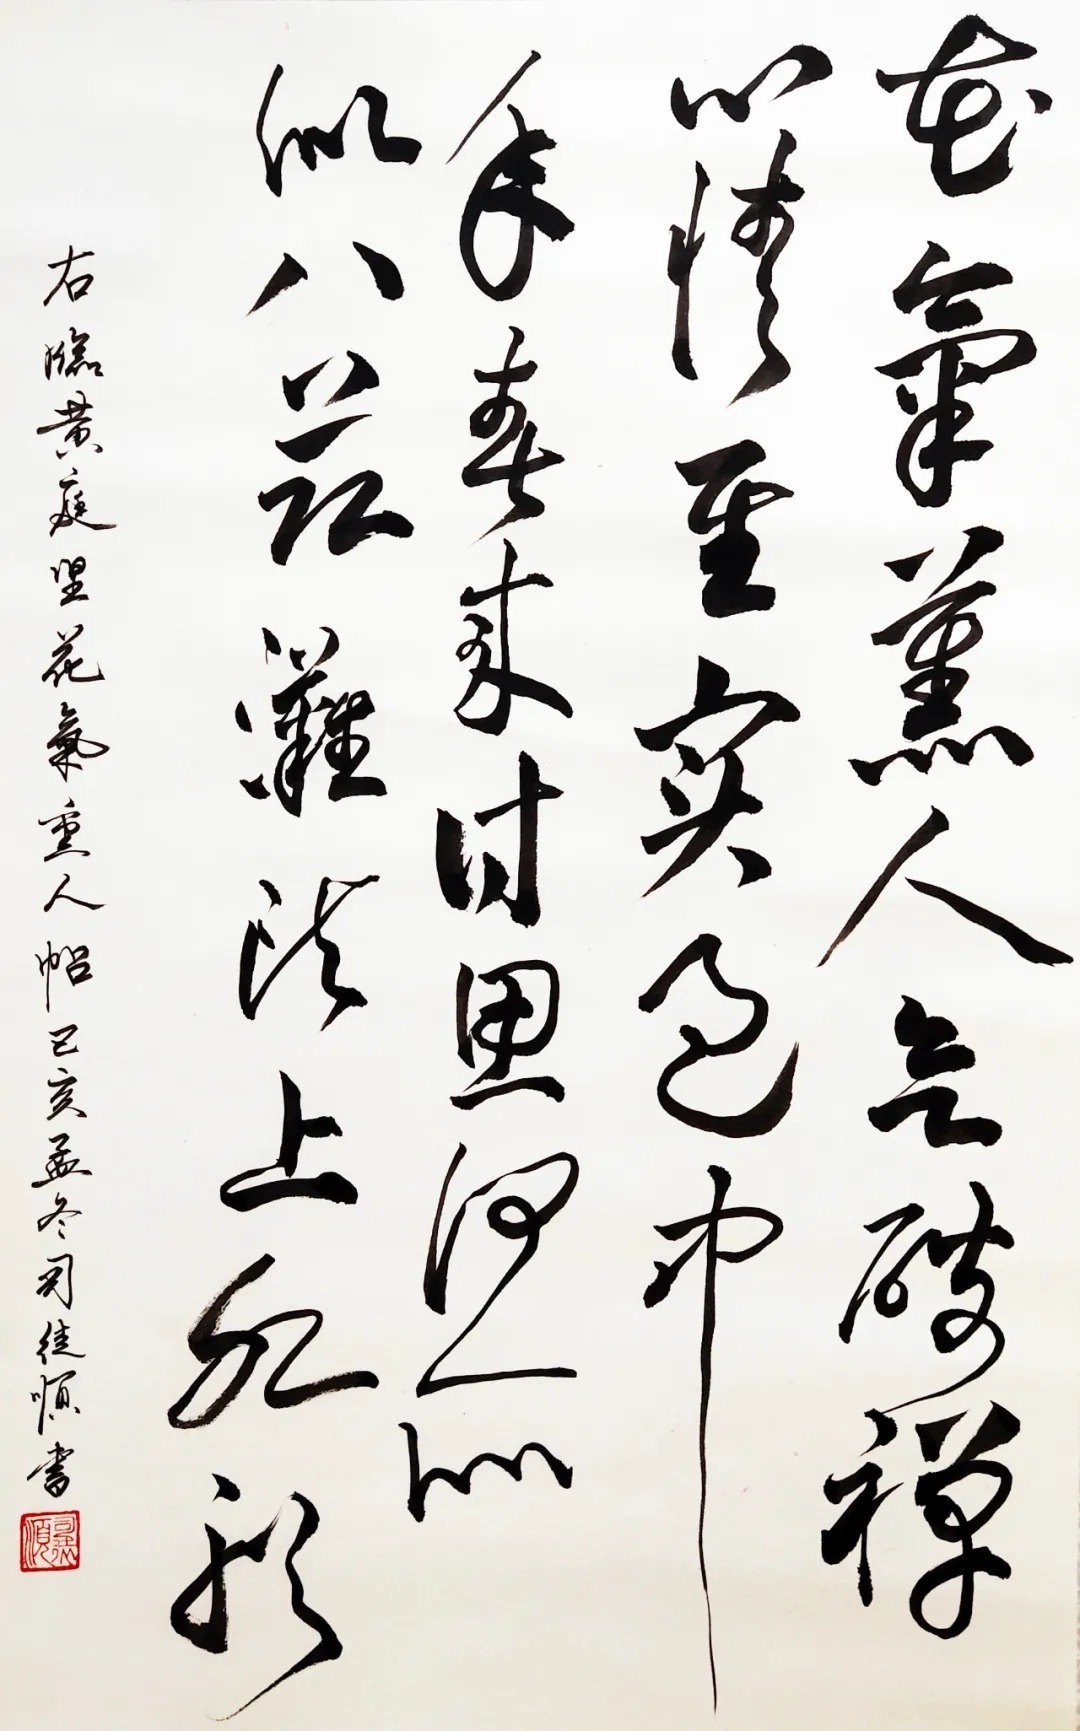 花氣薰人欲破禪
心情其实過中
年春来诗思何所
似八节灘头上水船
右臨黄庭坚花氣熏人帖己亥孟冬司徒順書